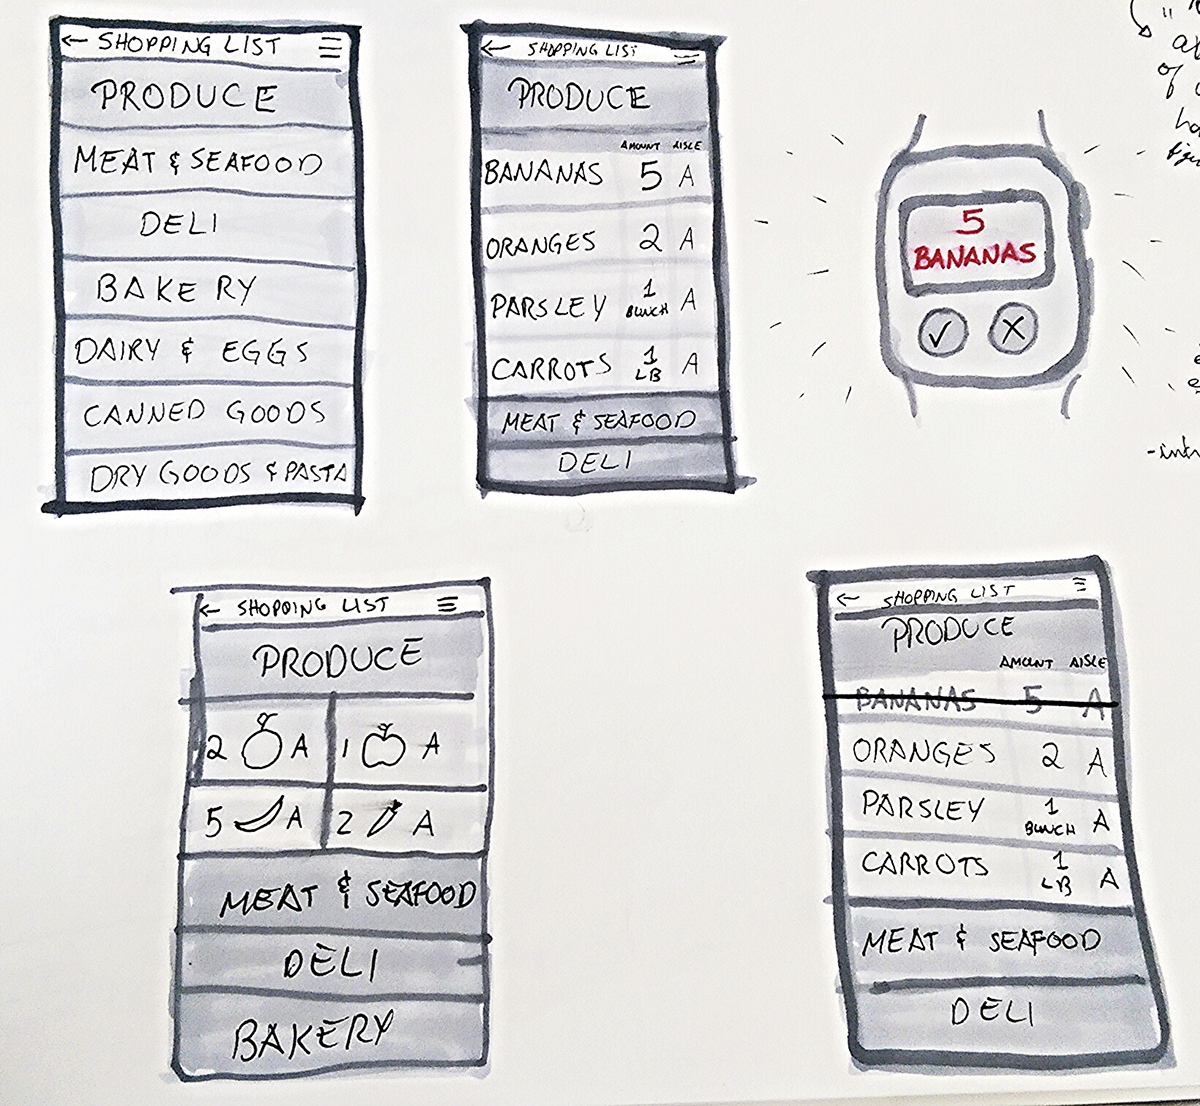 ← SHOPPING LIST
PRODUCE
MEAT & SEAFOOD
DELI
BAKERY
DAIRY & EGGS
CANNED GOODS
DRY GOODS & PASTA
← SHOPPING LIST
PRODUCE
AMOUNT AISLE
BANANAS 5 A
ORANGES 2 A
PARSLEY 1 BUNCH A
CARROTS 1 LB A
MEAT & SEAFOOD
DELI
5
BANANAS
✓ X
← SHOPPING LIST
PRODUCE
2 A 1 A
5 A 2 A
MEAT & SEAFOOD
DELI
BAKERY
← SHOPPING LIST
PRODUCE
AMOUNT AISLE
BANANAS 5 A
ORANGES 2 A
PARSLEY 1 BUNCH A
CARROTS 1 LB A
MEAT & SEAFOOD
DELI
of